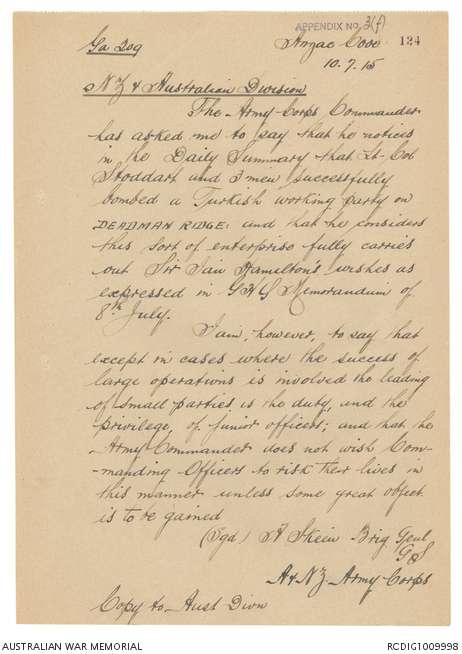 APPENDIX No. 3(f)
Ga 209 Anzac Cove 124
10.7.15
NZ & Australian Division
The Army Corps Commander
has asked me to say that he notices
in the Daily Summary that Lt-Col
Stoddart and 3 men successfully
bombed a Turkish working party on
DEADMAN RIDGE: and that he considers
this sort of enterprise fully carries
out Sir Ian Hamilton's wishes as
expressed in GHQ Memorandum of
8th July.
I am, however, to say that
except in cases where the success of
large operations is involved the leading
of small parties is the duty, and the
privilege, of junior officers; and that the
Army Commander does not wish Com-
-manding Officers to risk their lives in
this manner unless some great object
is to be gained
(Sgd) A Skeen Brig Genl
GS
A & NZ Army Corps
Copy to Aust Divn
AUSTRALIAN WAR MEMORIAL RCDIG1009998